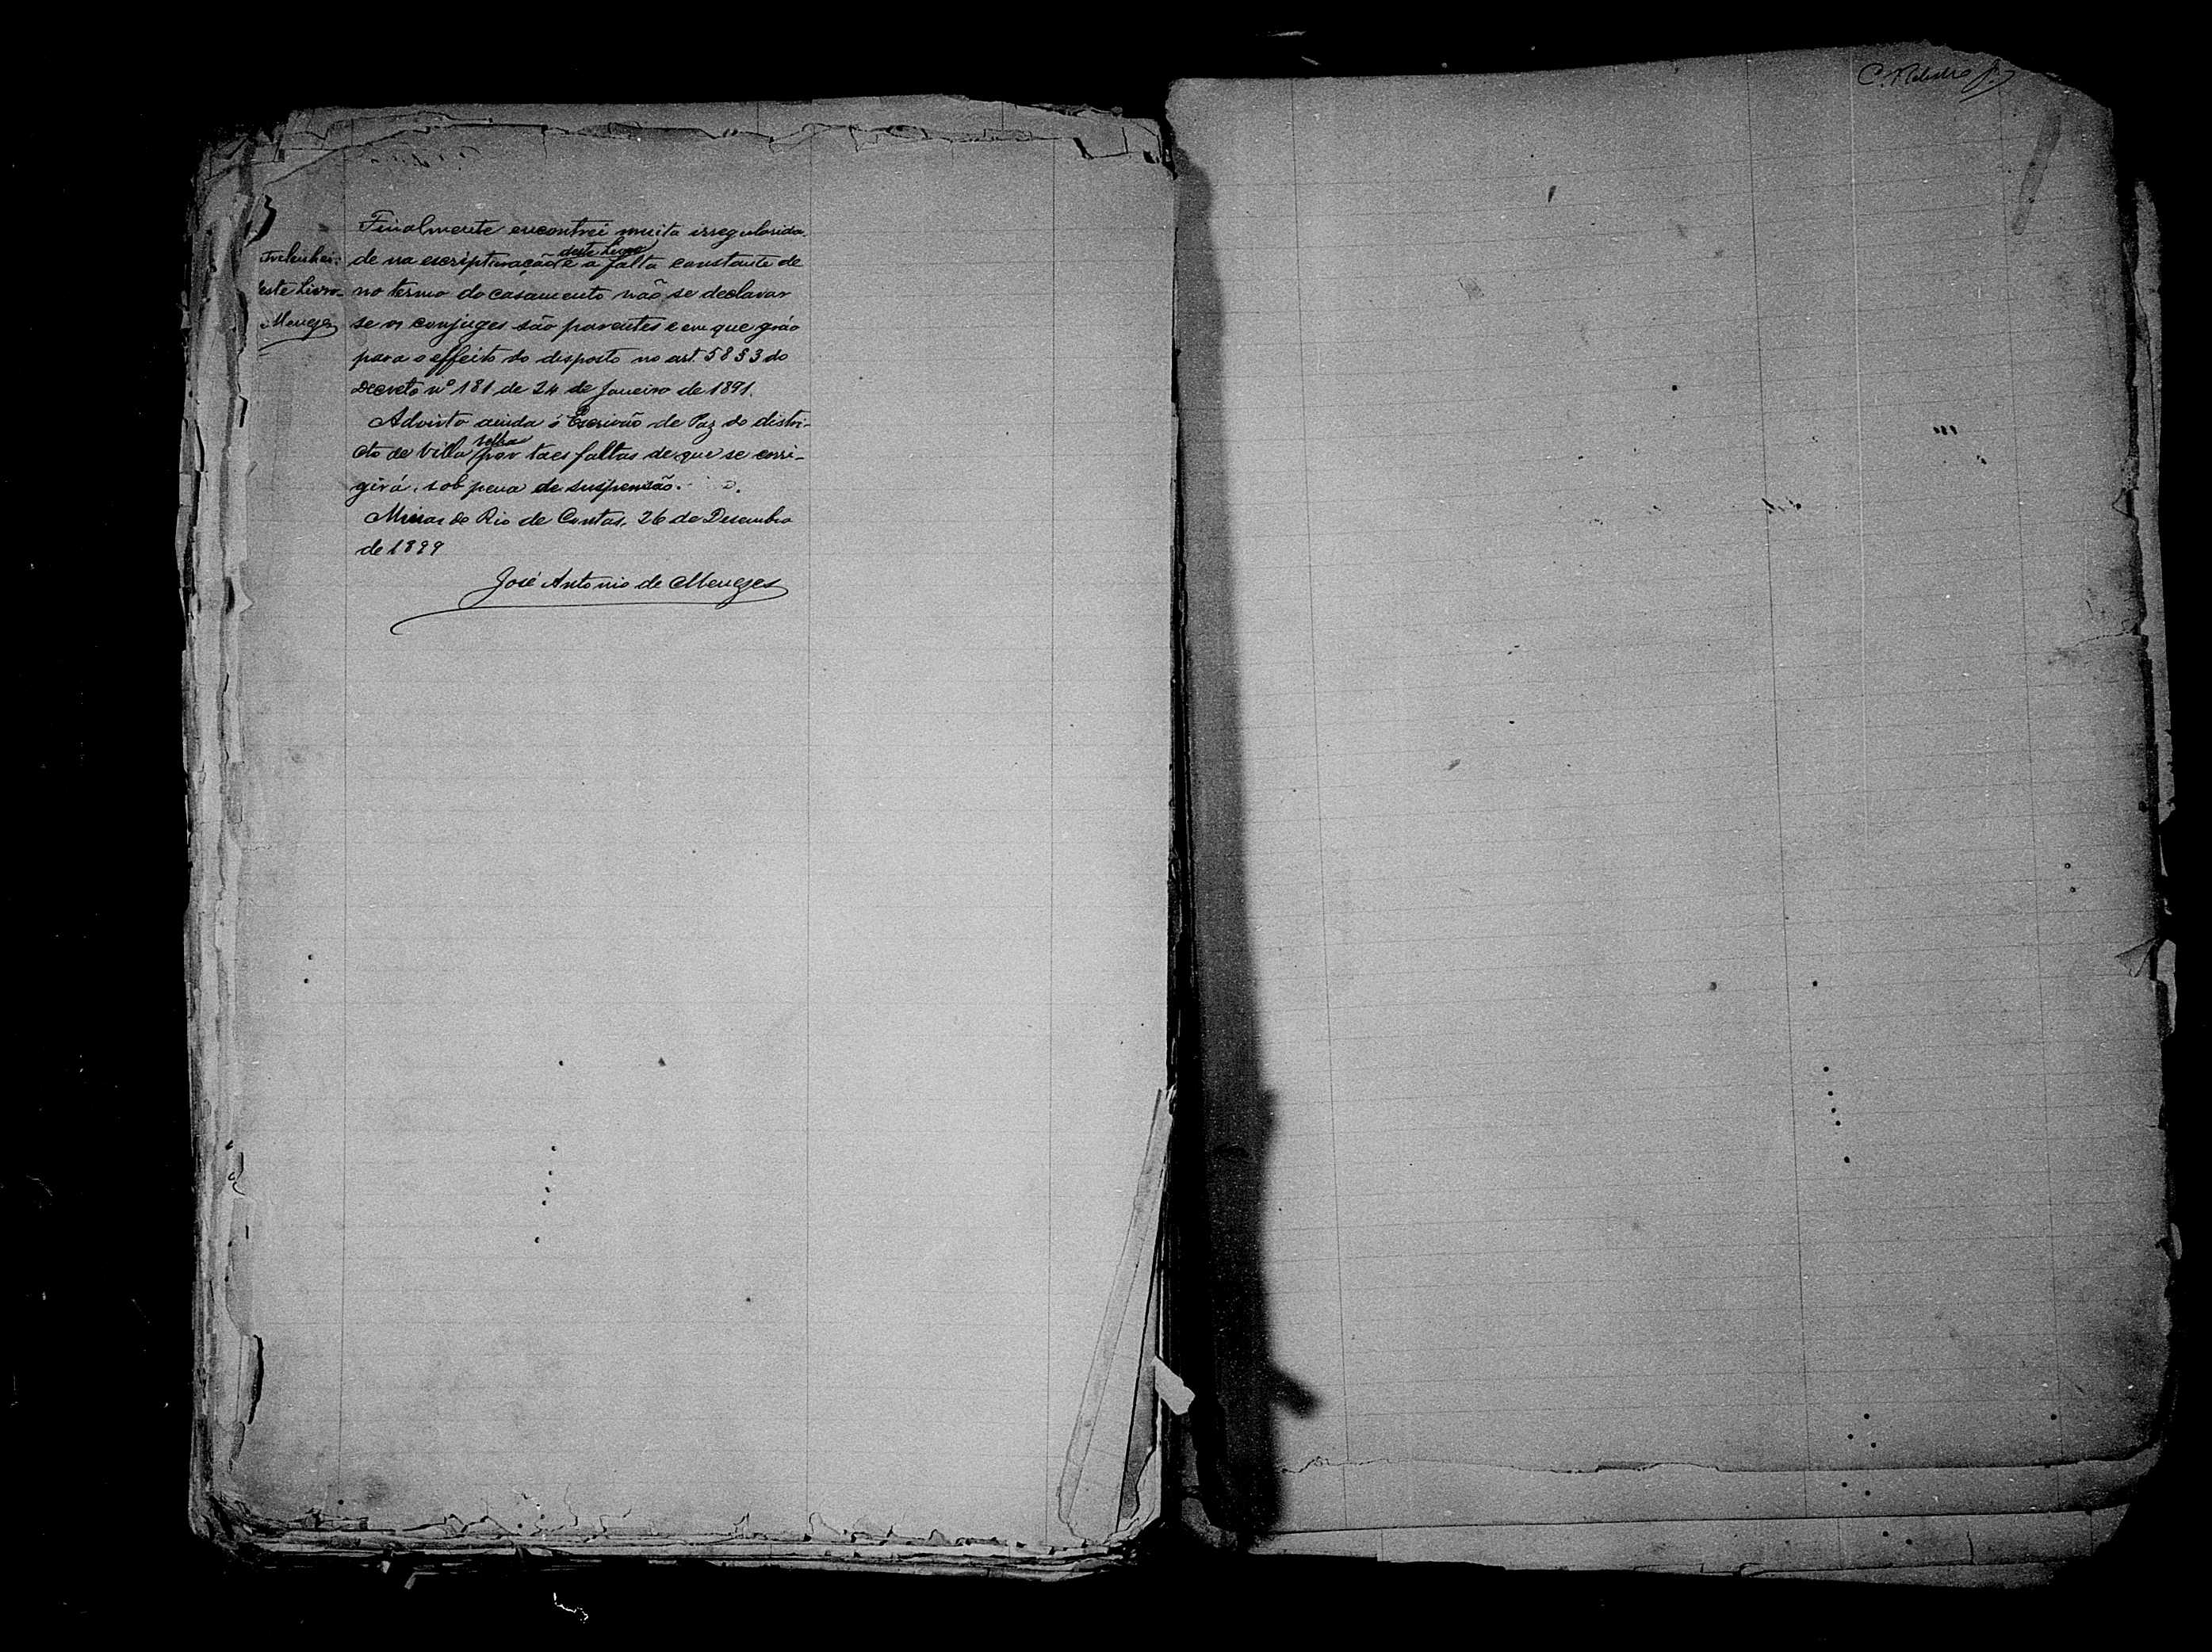 Finalmente encontrei muita irregularida-
de na escripturação deste Livro e a falta constante de
no termo do casamento não se declarar
se os conjuges são parentes e em que gráo
para o effeito do disposto no art. 58 § 3 do
Decreto nº 181 de 24 de Janeiro de 1891.
Advirto ainda ó Escrivão de Paz do distri-
cto de Villa Velha por taes faltas de que se corri-
girá, sob pena de suspensão.
Minas do Rio de Contas, 26 de Desembro
de 1899
José Antonio de Menezes
trelinhei:
este Livro.
Menezes